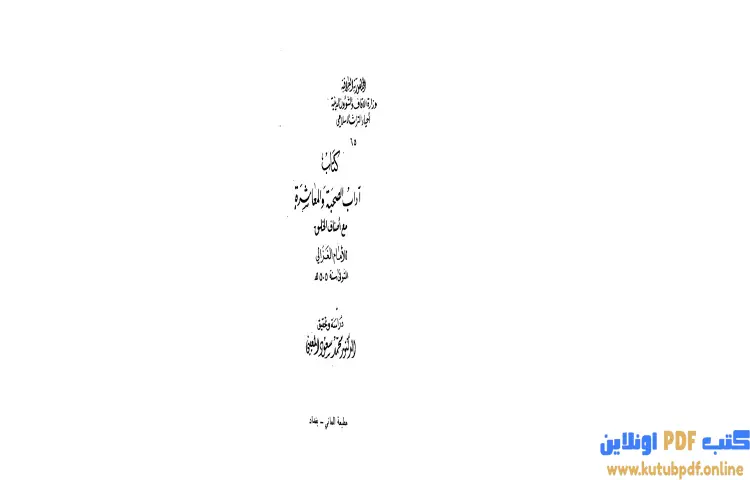 الجمهورية العراقية
وزارة الاوقاف والشؤون الدينية
احياء التراث الاسلامي
٦٥
كتاب
آداب الصحبة والمعاشرة
مع أصناف الخلق
للامام الغزالي
المتوفى سنة ٥٠٥ هـ
دراسة وتحقيق
الدكتور محمد سعود المعيني
مطبعة العاني - بغداد
كتب PDF اونلاين
www.kutubpdf.online